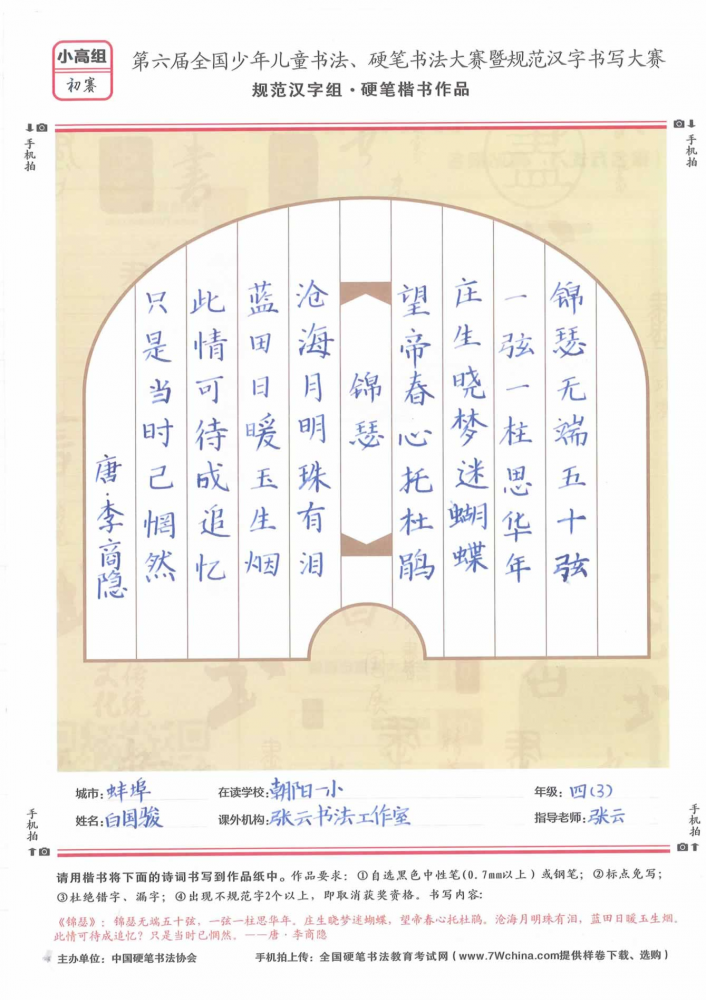 小高组
初赛
第六届全国少年儿童书法、硬笔书法大赛暨规范汉字书写大赛
规范汉字组·硬笔楷书作品
手机拍
手机拍
锦瑟无端五十弦
一弦一柱思华年
庄生晓梦迷蝴蝶
望帝春心托杜鹃
锦瑟
沧海月明珠有泪
蓝田日暖玉生烟
此情可待成追忆
只是当时已惘然
唐·李商隐
城市:蚌埠 在读学校:朝阳一小 年级:四(3)
姓名:白国骏 课外机构:张云书法工作室 指导老师:张云
手机拍
手机拍
请用楷书将下面的诗词书写到作品纸中。作品要求:①自选黑色中性笔(0.7mm以上)或钢笔;②标点免写;
③杜绝错字、漏字;④出现不规范字2个以上,即取消获奖资格。书写内容:
《锦瑟》:锦瑟无端五十弦,一弦一柱思华年。庄生晓梦迷蝴蝶,望帝春心托杜鹃。沧海月明珠有泪,蓝田日暖玉生烟。
此情可待成追忆?只是当时已惘然。——唐·李商隐
主办单位:中国硬笔书法协会 手机拍上传:全国硬笔书法教育考试网(www.7Wchina.com提供样卷下载、选购)